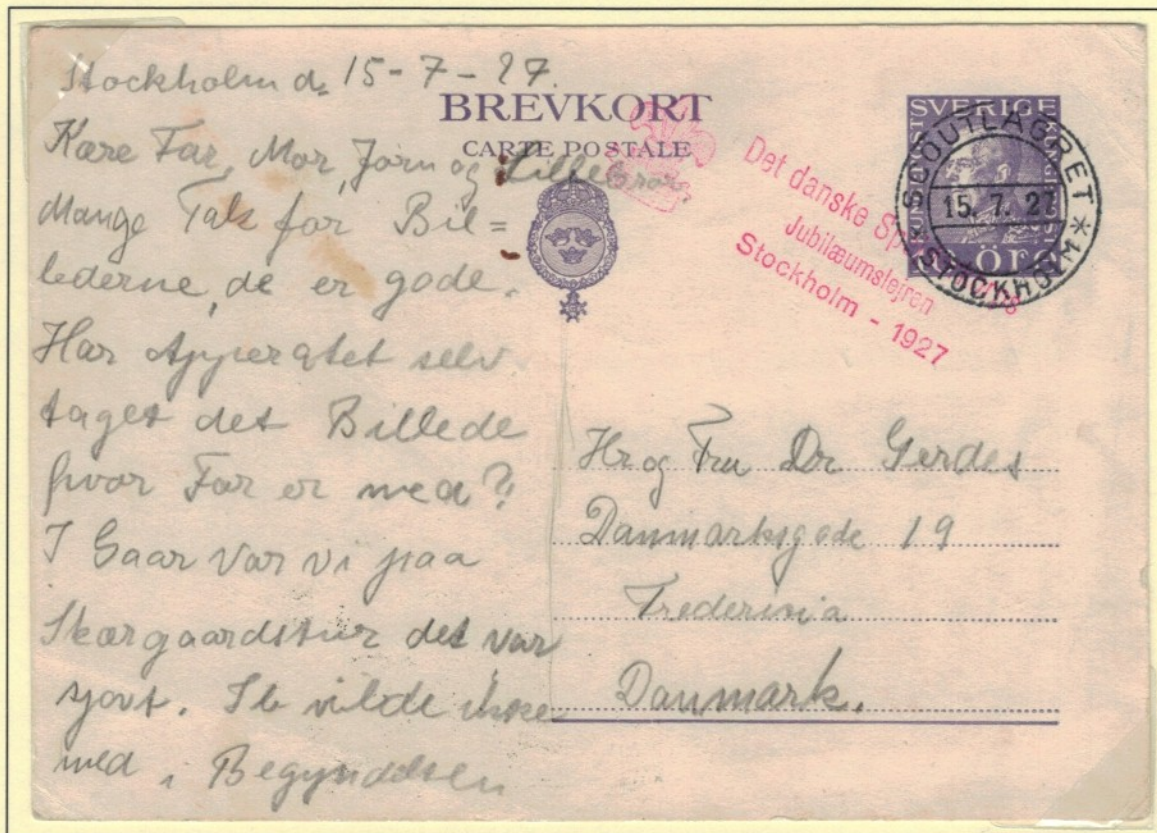 Stockholm d. 15-7-27.
BREVKORT
CARTE POSTALE
Kære Far, Mor, Jørn og Lillebror.
Mange Tak for Bil=
lederne, de er gode.
Har Apperatet selv
taget det Billede
hvor Far er med?
I Gaar var vi paa
Skærgaardstur det var
sjovt. Ib vilde ikke
med i Begyndelsen
Det danske
Jubilæumslejren
Stockholm - 1927
SVERIGE
ÖRE
* SCOUTLÄGRET *
15. 7. 27
STOCKHOLM
Hr og Fru Dr Gerdes
Danmarksgade 19
Fredericia
Danmark.